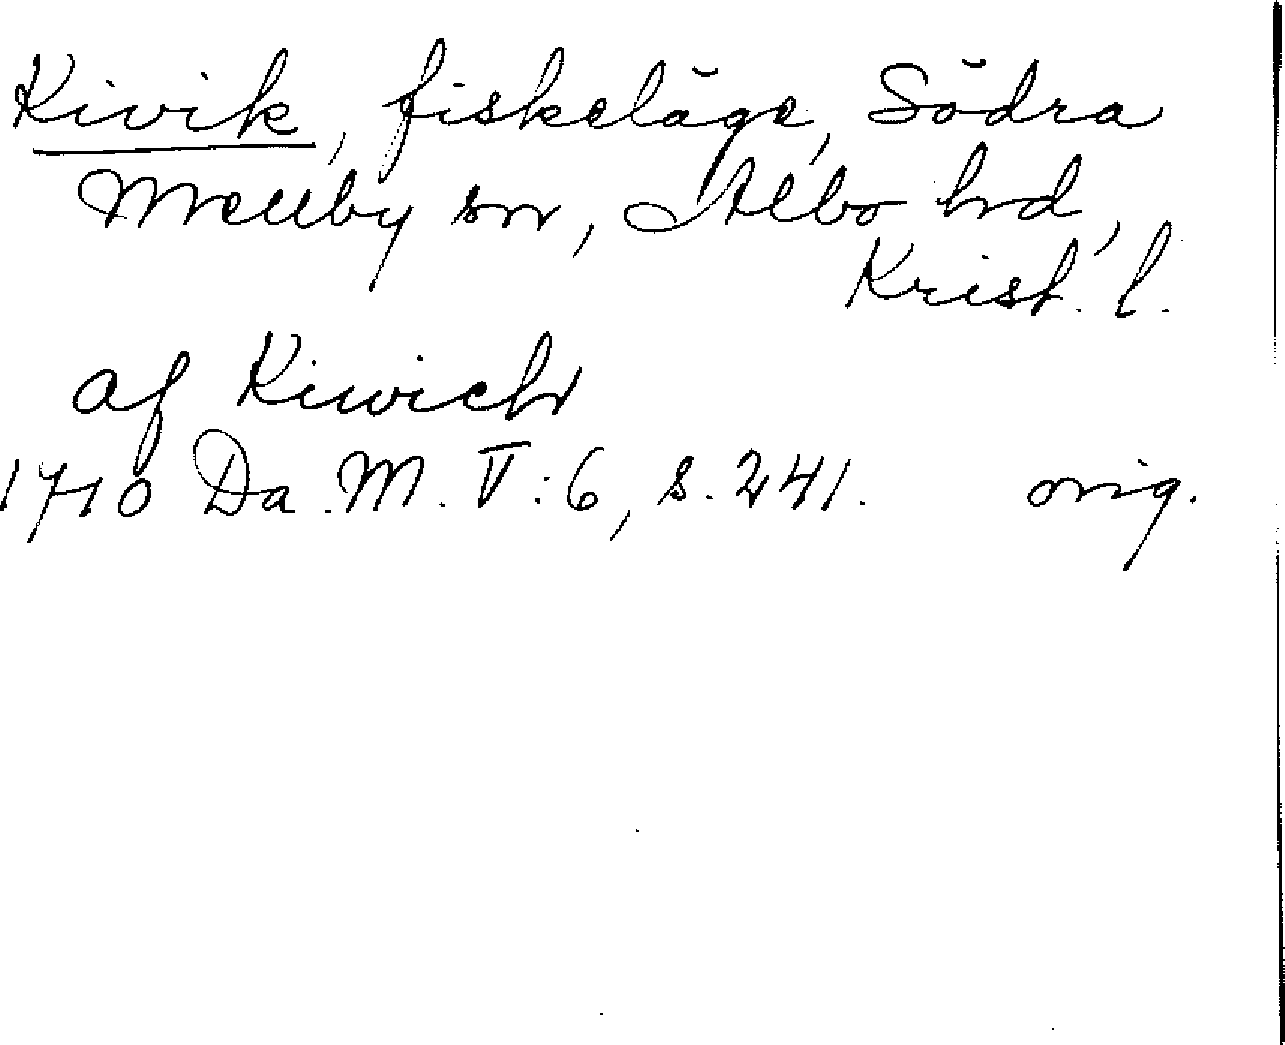 Kivik, fiskeläge, Södra
Mellby sn, Albo hd,
Krist. l.
af Kiwich
1710 Da. M. V:6, s. 241. orig.